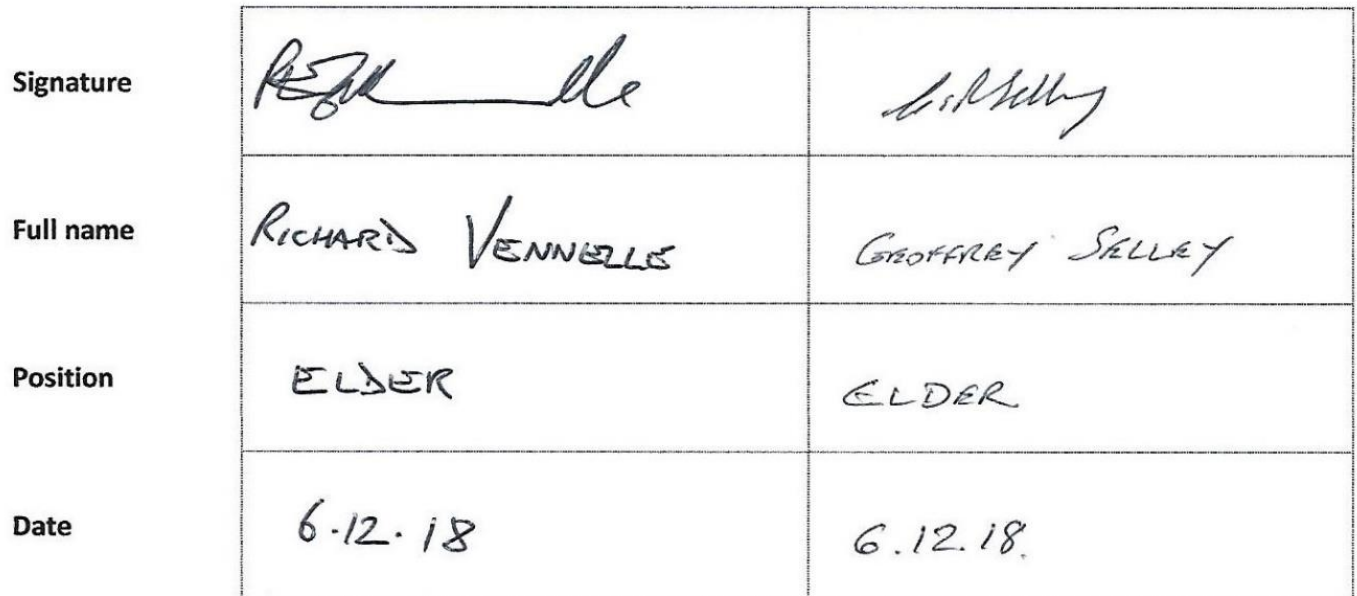 Signature
Full name RICHARD VENNELLE GEOFFREY SELLEY
Position ELDER ELDER
Date 6.12.18 6.12.18.